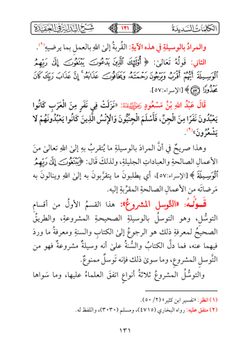 الكلمات السديدة ١٣١ شرح البداية في العقيدة
والمرادُ بالوسيلةِ في هذه الآية: القُربةُ إلى اللهِ بالعملِ بما يرضيهِ(١).
الثاني: قولُهُ تعالى: ﴿أُولَٰئِكَ الَّذِينَ يَدْعُونَ يَبْتَغُونَ إِلَىٰ رَبِّهِمُ
الْوَسِيلَةَ أَيُّهُمْ أَقْرَبُ وَيَرْجُونَ رَحْمَتَهُ وَيَخَافُونَ عَذَابَهُ ۚ إِنَّ عَذَابَ رَبِّكَ كَانَ
مَحْذُورًا ﴿٥٧﴾﴾ [الإسراء:٥٧].
قَالَ عَبْدُ اللهِ بْنُ مَسْعُودٍ: «نَزَلَتْ فِي نَفَرٍ مِنَ الْعَرَبِ كَانُوا
يَعْبُدُونَ نَفَرًا مِنَ الْجِنِّ، فَأَسْلَمَ الْجِنِّيُّونَ وَالْإِنْسُ الَّذِينَ كَانُوا يَعْبُدُونَهُمْ لا
يَشْعُرُونَ»(٢).
وهذا صريحٌ في أنَّ المرادَ بالوسيلةِ ما يُتقربُ بهِ إلى اللهِ تعالىٰ منَ
الأعمالِ الصالحةِ والعباداتِ الجليلةِ، ولذلكَ قالَ: ﴿يَبْتَغُونَ إِلَىٰ رَبِّهِمُ
الْوَسِيلَةَ﴾ [الإسراء:٥٧]، أي يطلبونَ ما يتقرَّبونَ بهِ إلى اللهِ وينالونَ بهِ
مَرضاتَه منَ الأعمالِ الصالحةِ المقرِّبةِ إليهِ.
قَوْلُهُ: «التَّوَسلُ المشروعُ»: هذا القسمُ الأولُ من أقسامِ
التوسُّلِ، وهو التوسلُ بالوسيلةِ الصحيحةِ المشروعةِ، والطريقُ
الصحيحُ لمعرفةِ ذلك هو الرجوعُ إلى الكتابِ والسنةِ ومعرفةُ ما وردَ
فيهما عنه، فما دلَّ الكتابُ والسُّنةُ علىٰ أنه وسيلةٌ مشروعةٌ فهو من
التَّوسلِ المشروعِ، وما سوىٰ ذلك فإنه توسلٌ ممنوعٌ.
والتوسُّلُ المشروعُ ثلاثةُ أنواعٍ اتفقَ العلماءُ عليها، وما سَواها
(١) انظر: «تفسير ابن كثير» (٢/ ٥٠).
(٢) متفق عليه: رواه البخاري (٤٧١٥)، ومسلم (٣٠٣٠)، واللفظ له.
١٣١